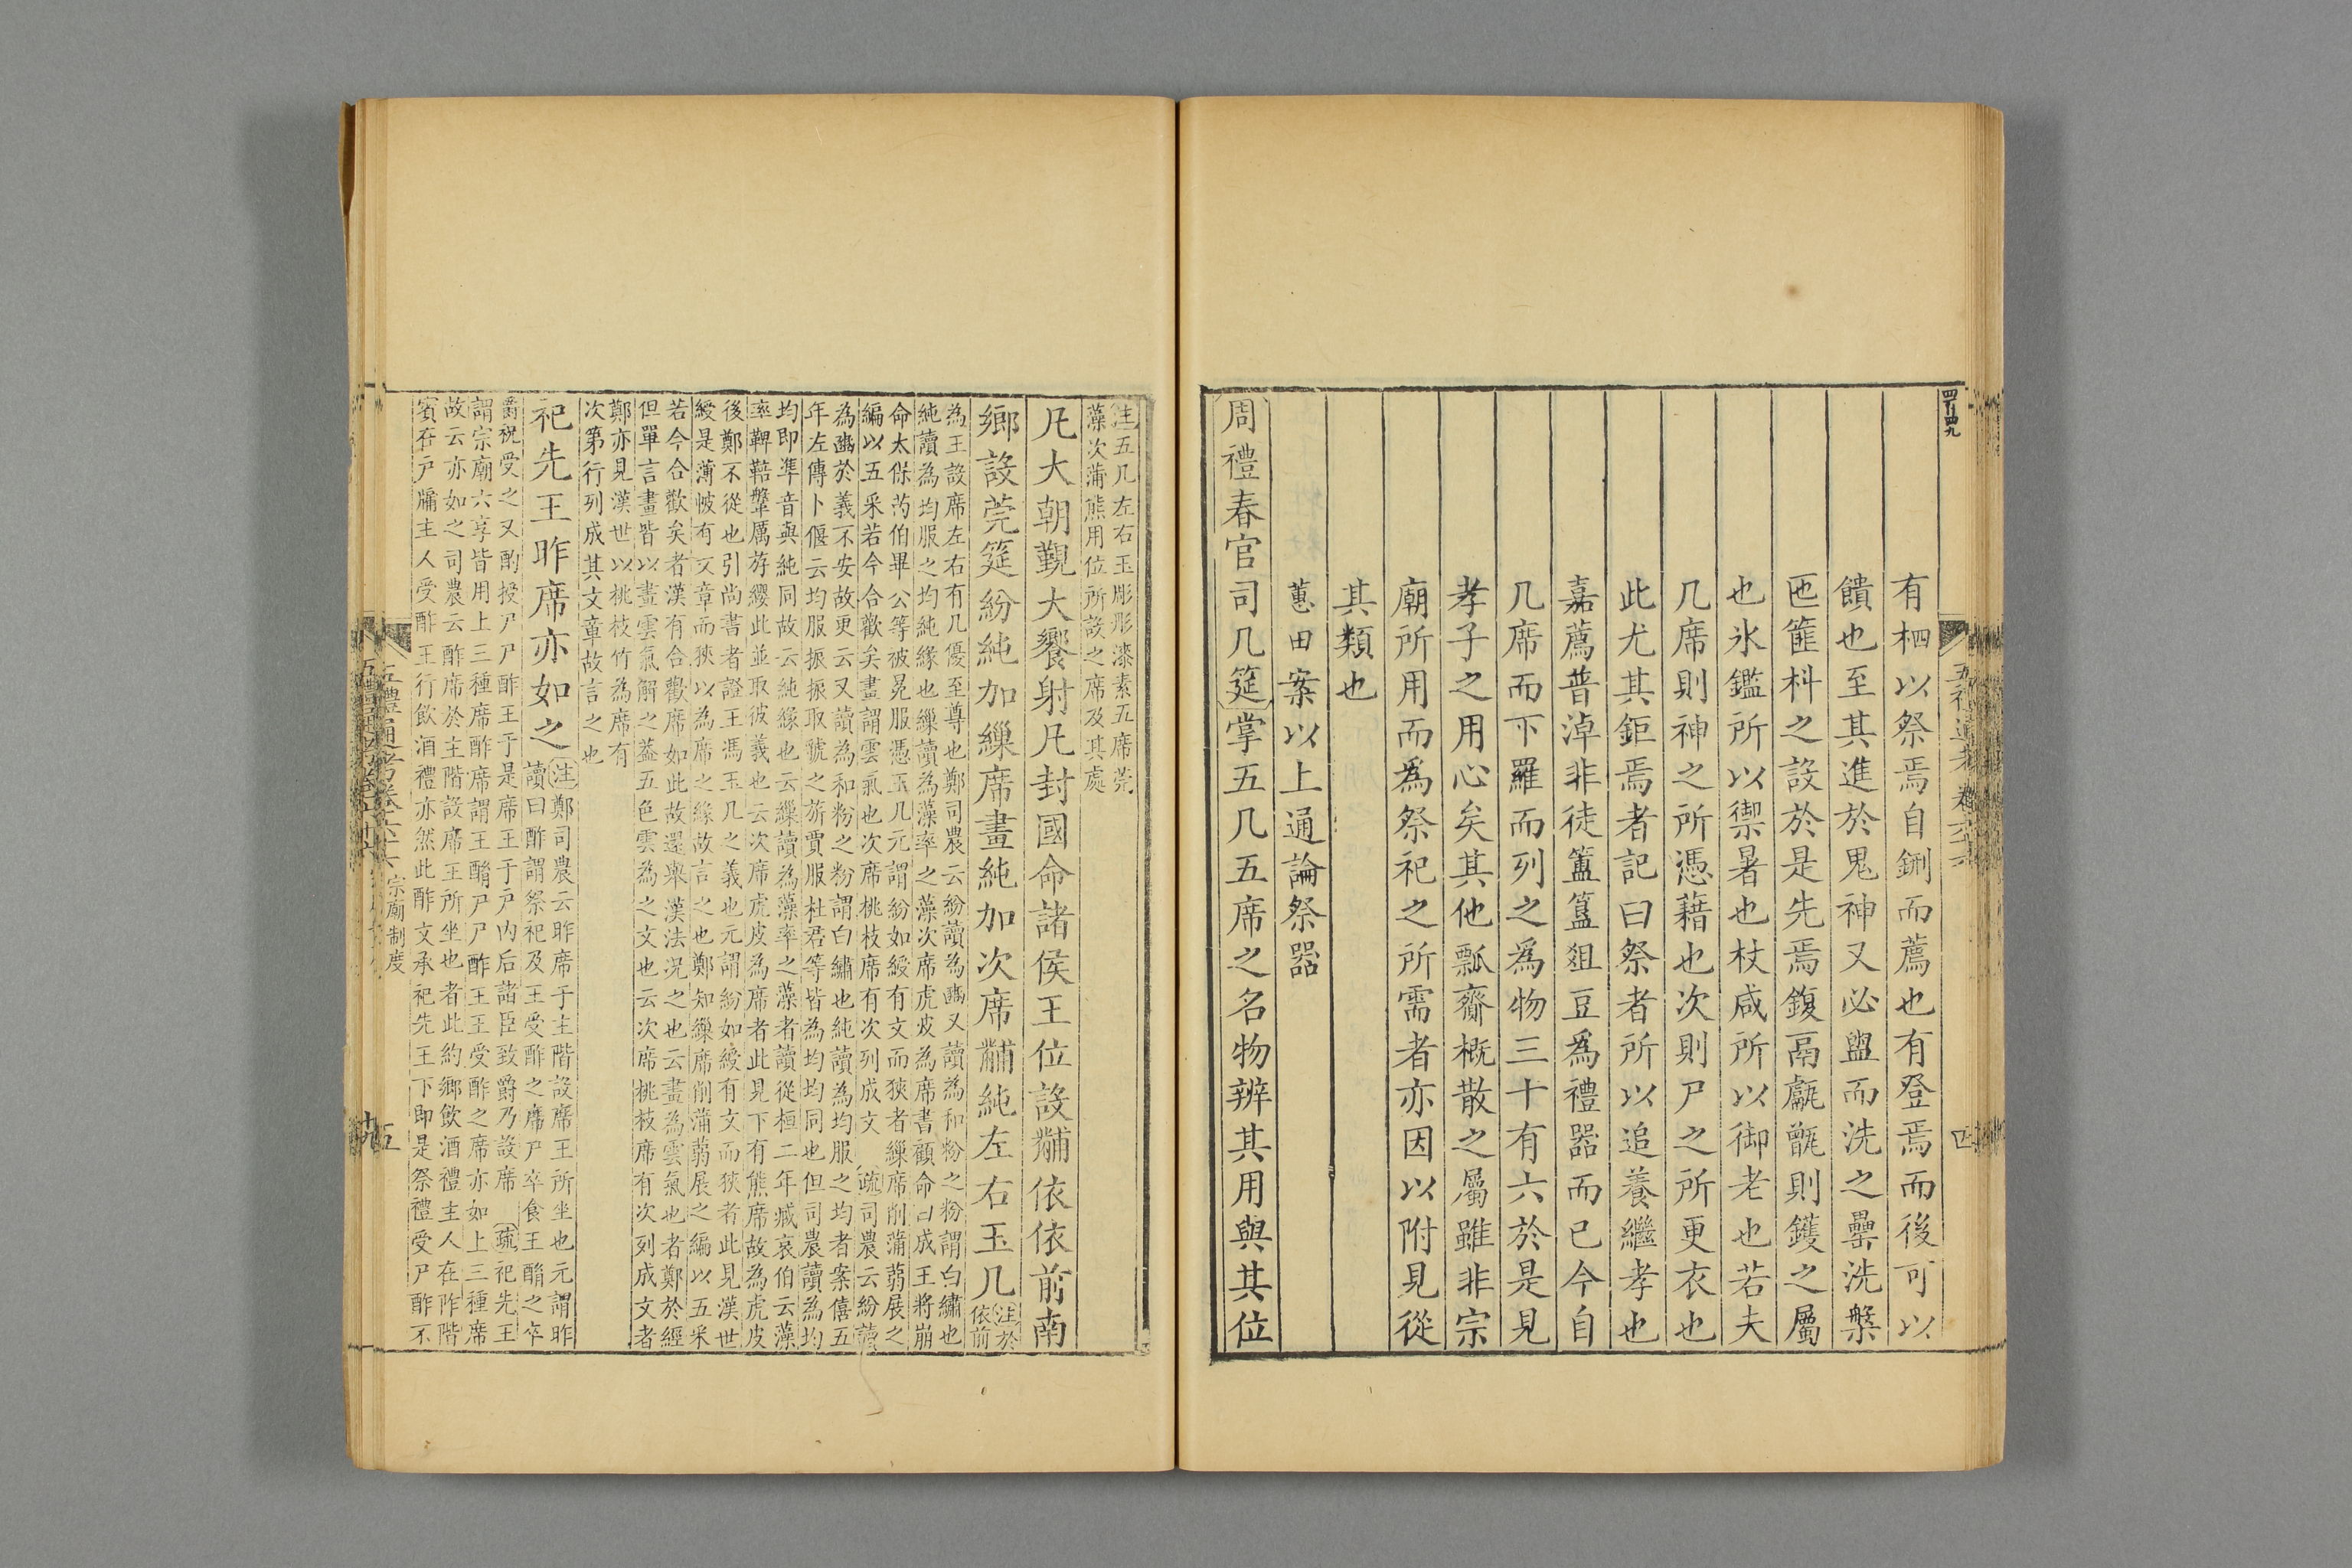 有柶以祭焉自鉶而薦也有登焉而後可以
饋也至其進於鬼神又必盥而洗之罍洗槃
匜篚枓之設於是先焉鍑鬲甗甑則鑊之屬
也氷鑑所以禦暑也杖咸所以御老也若夫
几席則神之所憑藉也次則尸之所更衣也
此尤其鉅焉者記曰祭者所以追養繼孝也
嘉薦普淖非徒簠簋俎豆爲禮器而已今自
几席而下羅而列之爲物三十有六於是見
孝子之用心矣其他瓢齎概散之屬雖非宗
廟所用而爲祭祀之所需者亦因以附見從
其類也
蕙田案以上通論祭器
周禮春官司几筵掌五几五席之名物辨其用與其位
注五几左右玉彫彤漆素五席莞
藻次蒲熊用位所設之席及其處
凡大朝覲大饗射凡封國命諸侯王位設黼依依前南
鄉設莞筵紛純加繅席畫純加次席黼純左右玉几注於
依前
為王設席左右有几優至尊也鄭司農云紛讀為豳又讀為和粉之粉謂白繡也
純讀為均服之均純緣也繅讀為藻率之藻次席虎皮為席書顧命曰成王將崩
命太保芮伯畢公等被冕服憑玉几元謂紛如綬有文而狹者繅席削蒲蒻展之
編以五采若今合歡矣畫謂雲氣也次席桃枝席有次列成文　疏司農云紛讀
為豳於義不安故更云又讀為和粉之粉謂白繡也純讀為均服之均者案僖五
年左傳卜偃云均服振振取虢之旂賈服杜君等皆為均均同也但司農讀為均
均即準音與純同故云純緣也云繅讀為藻率之藻者讀從桓二年臧哀伯云藻
率鞞鞛鞶厲游纓此並取彼義也云次席虎皮為席者此見下有熊席故為虎皮
後鄭不從也引尚書者證王馮玉几之義也元謂紛如綬有文而狹者此見漢世
綬是薄帔有文章而狹以為席之緣故言之也鄭知繅席削蒲蒻展之編以五采
若今合歡矣者漢有合歡席如此故還舉漢法況之也云畫為雲氣也者鄭於經
但單言畫皆以畫雲氣解之蓋五色雲為之文也云次席桃枝席有次列成文者
鄭亦見漢世以桃枝竹為席有
次第行列成其文章故言之也
祀先王昨席亦如之注鄭司農云昨席于主階設席王所坐也元謂昨
讀曰酢謂祭祀及王受酢之席尸卒食王酳之卒
爵祝受之又酌授尸尸酢王于是席王于戶內后諸臣致爵乃設席　疏祀先王
謂宗廟六享皆用上三種席酢席謂王酳尸尸酢王王受酢之席亦如上三種席
故云亦如之司農云酢席於主階設席王所坐也者此約鄉飲酒禮主人在阼階
賓在戶牖主人受酢王行飲酒禮亦然此酢文承祀先王下即是祭禮受尸酢不
五禮通考卷六十六　宗廟制度　五